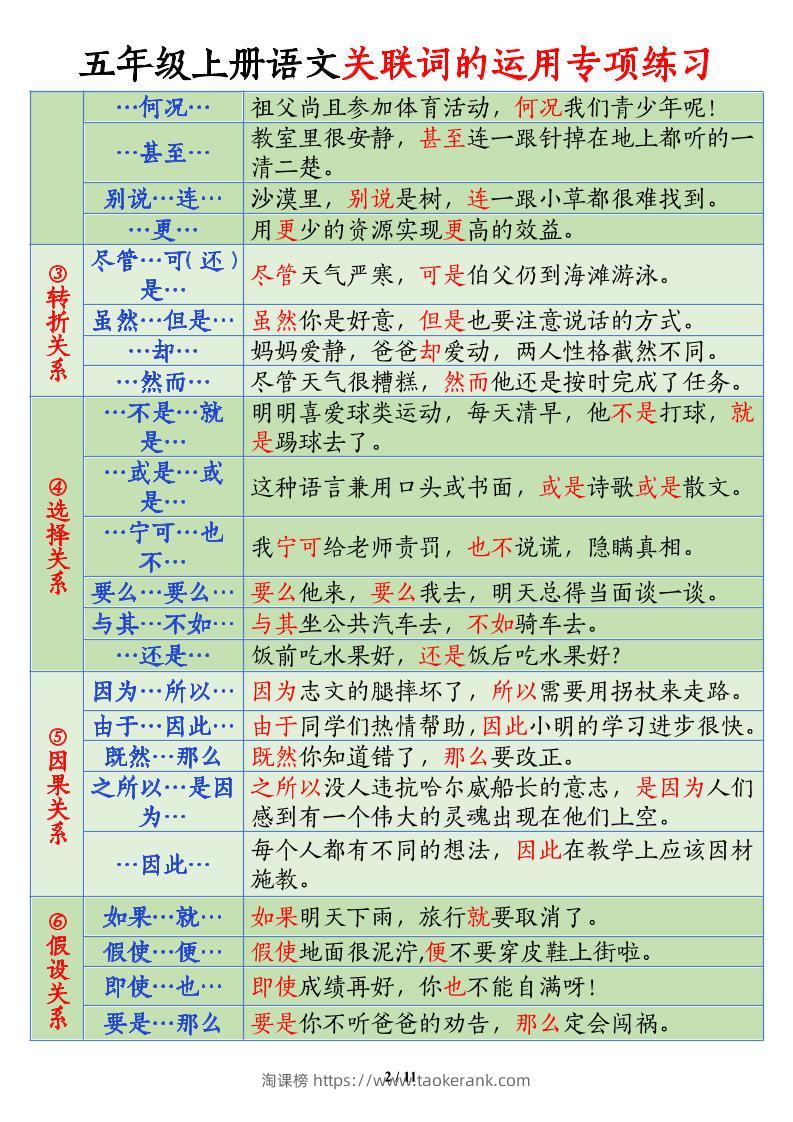 五年级上册语文关联词的运用专项练习
…何况… 祖父尚且参加体育活动，何况我们青少年呢！
…甚至… 教室里很安静，甚至连一跟针掉在地上都听的一
清二楚。
别说…连… 沙漠里，别说是树，连一跟小草都很难找到。
…更… 用更少的资源实现更高的效益。
③转折关系
尽管…可（还）
是… 尽管天气严寒，可是伯父仍到海滩游泳。
虽然…但是… 虽然你是好意，但是也要注意说话的方式。
…却… 妈妈爱静，爸爸却爱动，两人性格截然不同。
…然而… 尽管天气很糟糕，然而他还是按时完成了任务。
④选择关系
…不是…就
是… 明明喜爱球类运动，每天清早，他不是打球，就
是踢球去了。
…或是…或
是… 这种语言兼用口头或书面，或是诗歌或是散文。
…宁可…也
不… 我宁可给老师责罚，也不说谎，隐瞒真相。
要么…要么… 要么他来，要么我去，明天总得当面谈一谈。
与其…不如… 与其坐公共汽车去，不如骑车去。
…还是… 饭前吃水果好，还是饭后吃水果好？
⑤因果关系
因为…所以… 因为志文的腿摔坏了，所以需要用拐杖来走路。
由于…因此… 由于同学们热情帮助,因此小明的学习进步很快。
既然…那么 既然你知道错了，那么要改正。
之所以…是因
为… 之所以没人违抗哈尔威船长的意志，是因为人们
感到有一个伟大的灵魂出现在他们上空。
…因此… 每个人都有不同的想法，因此在教学上应该因材
施教。
⑥假设关系
如果…就… 如果明天下雨，旅行就要取消了。
假使…便… 假使地面很泥泞,便不要穿皮鞋上街啦。
即使…也… 即使成绩再好，你也不能自满呀！
要是…那么 要是你不听爸爸的劝告，那么定会闯祸。
2 / 11
淘课榜 https://www.taokerank.com